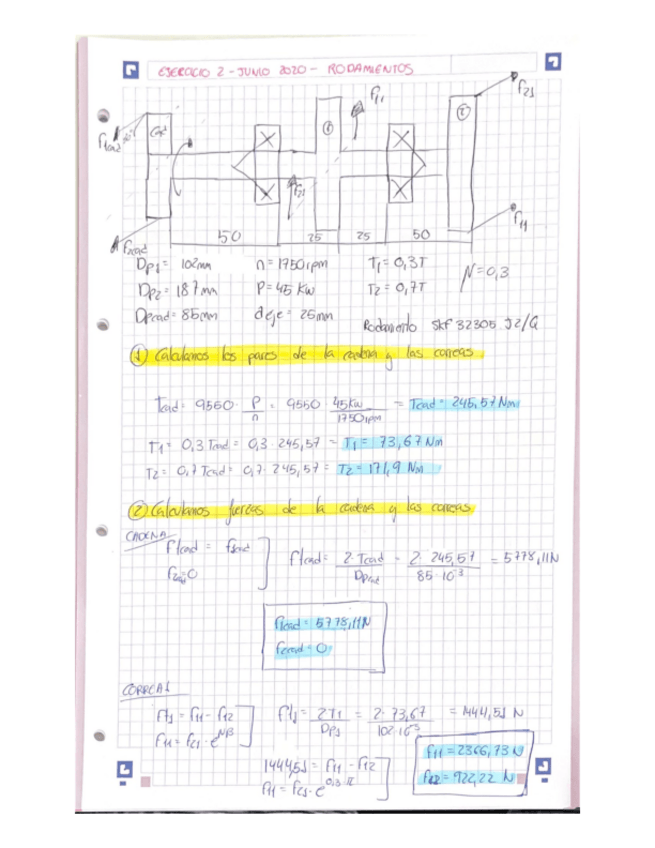 EJERCICIO 2 - JUNIO 2020 - RODAMIENTOS
Ft1
F21
Cad
①
②
F1cad
F21
F11
F2cad
50
25
25
50
Dp1 = 102mm n = 1750 rpm T1 = 0,3T
N = 0,3
Dp2 = 187mm P = 45 kW T2 = 0,7T
Dpcad = 85mm deje = 25mm
Rodamiento SKF 32305 J2/Q
① Calculamos los pares de la cadena y las correas.
Tcad = 9550 · P/n = 9550 45kW/1750rpm = Tcad = 245,57 Nm
T1 = 0,3 Tcad = 0,3 · 245,57 = T1 = 73,67 Nm
T2 = 0,7 Tcad = 0,7 · 245,57 = T2 = 171,9 Nm
② Calculamos fuerzas de la cadena y las correas.
CADENA
F1cad = Ftcad
F2cad = 0
F1cad = 2·Tcad/Dpcad = 2·245,57/85·10⁻³ = 5778,11N
F1cad = 5778,11N
F2cad = 0
CORREAS
Ft1 = F11 - F12
F11 = F21 · e^Nβ
Ft1 = 2T1/Dp1 = 2·73,67/102·10⁻³ = 1444,51 N
1444,51 = F11 - F12
F11 = F21 · e^0,3·π
F11 = 2366,73 N
F12 = 922,22 N